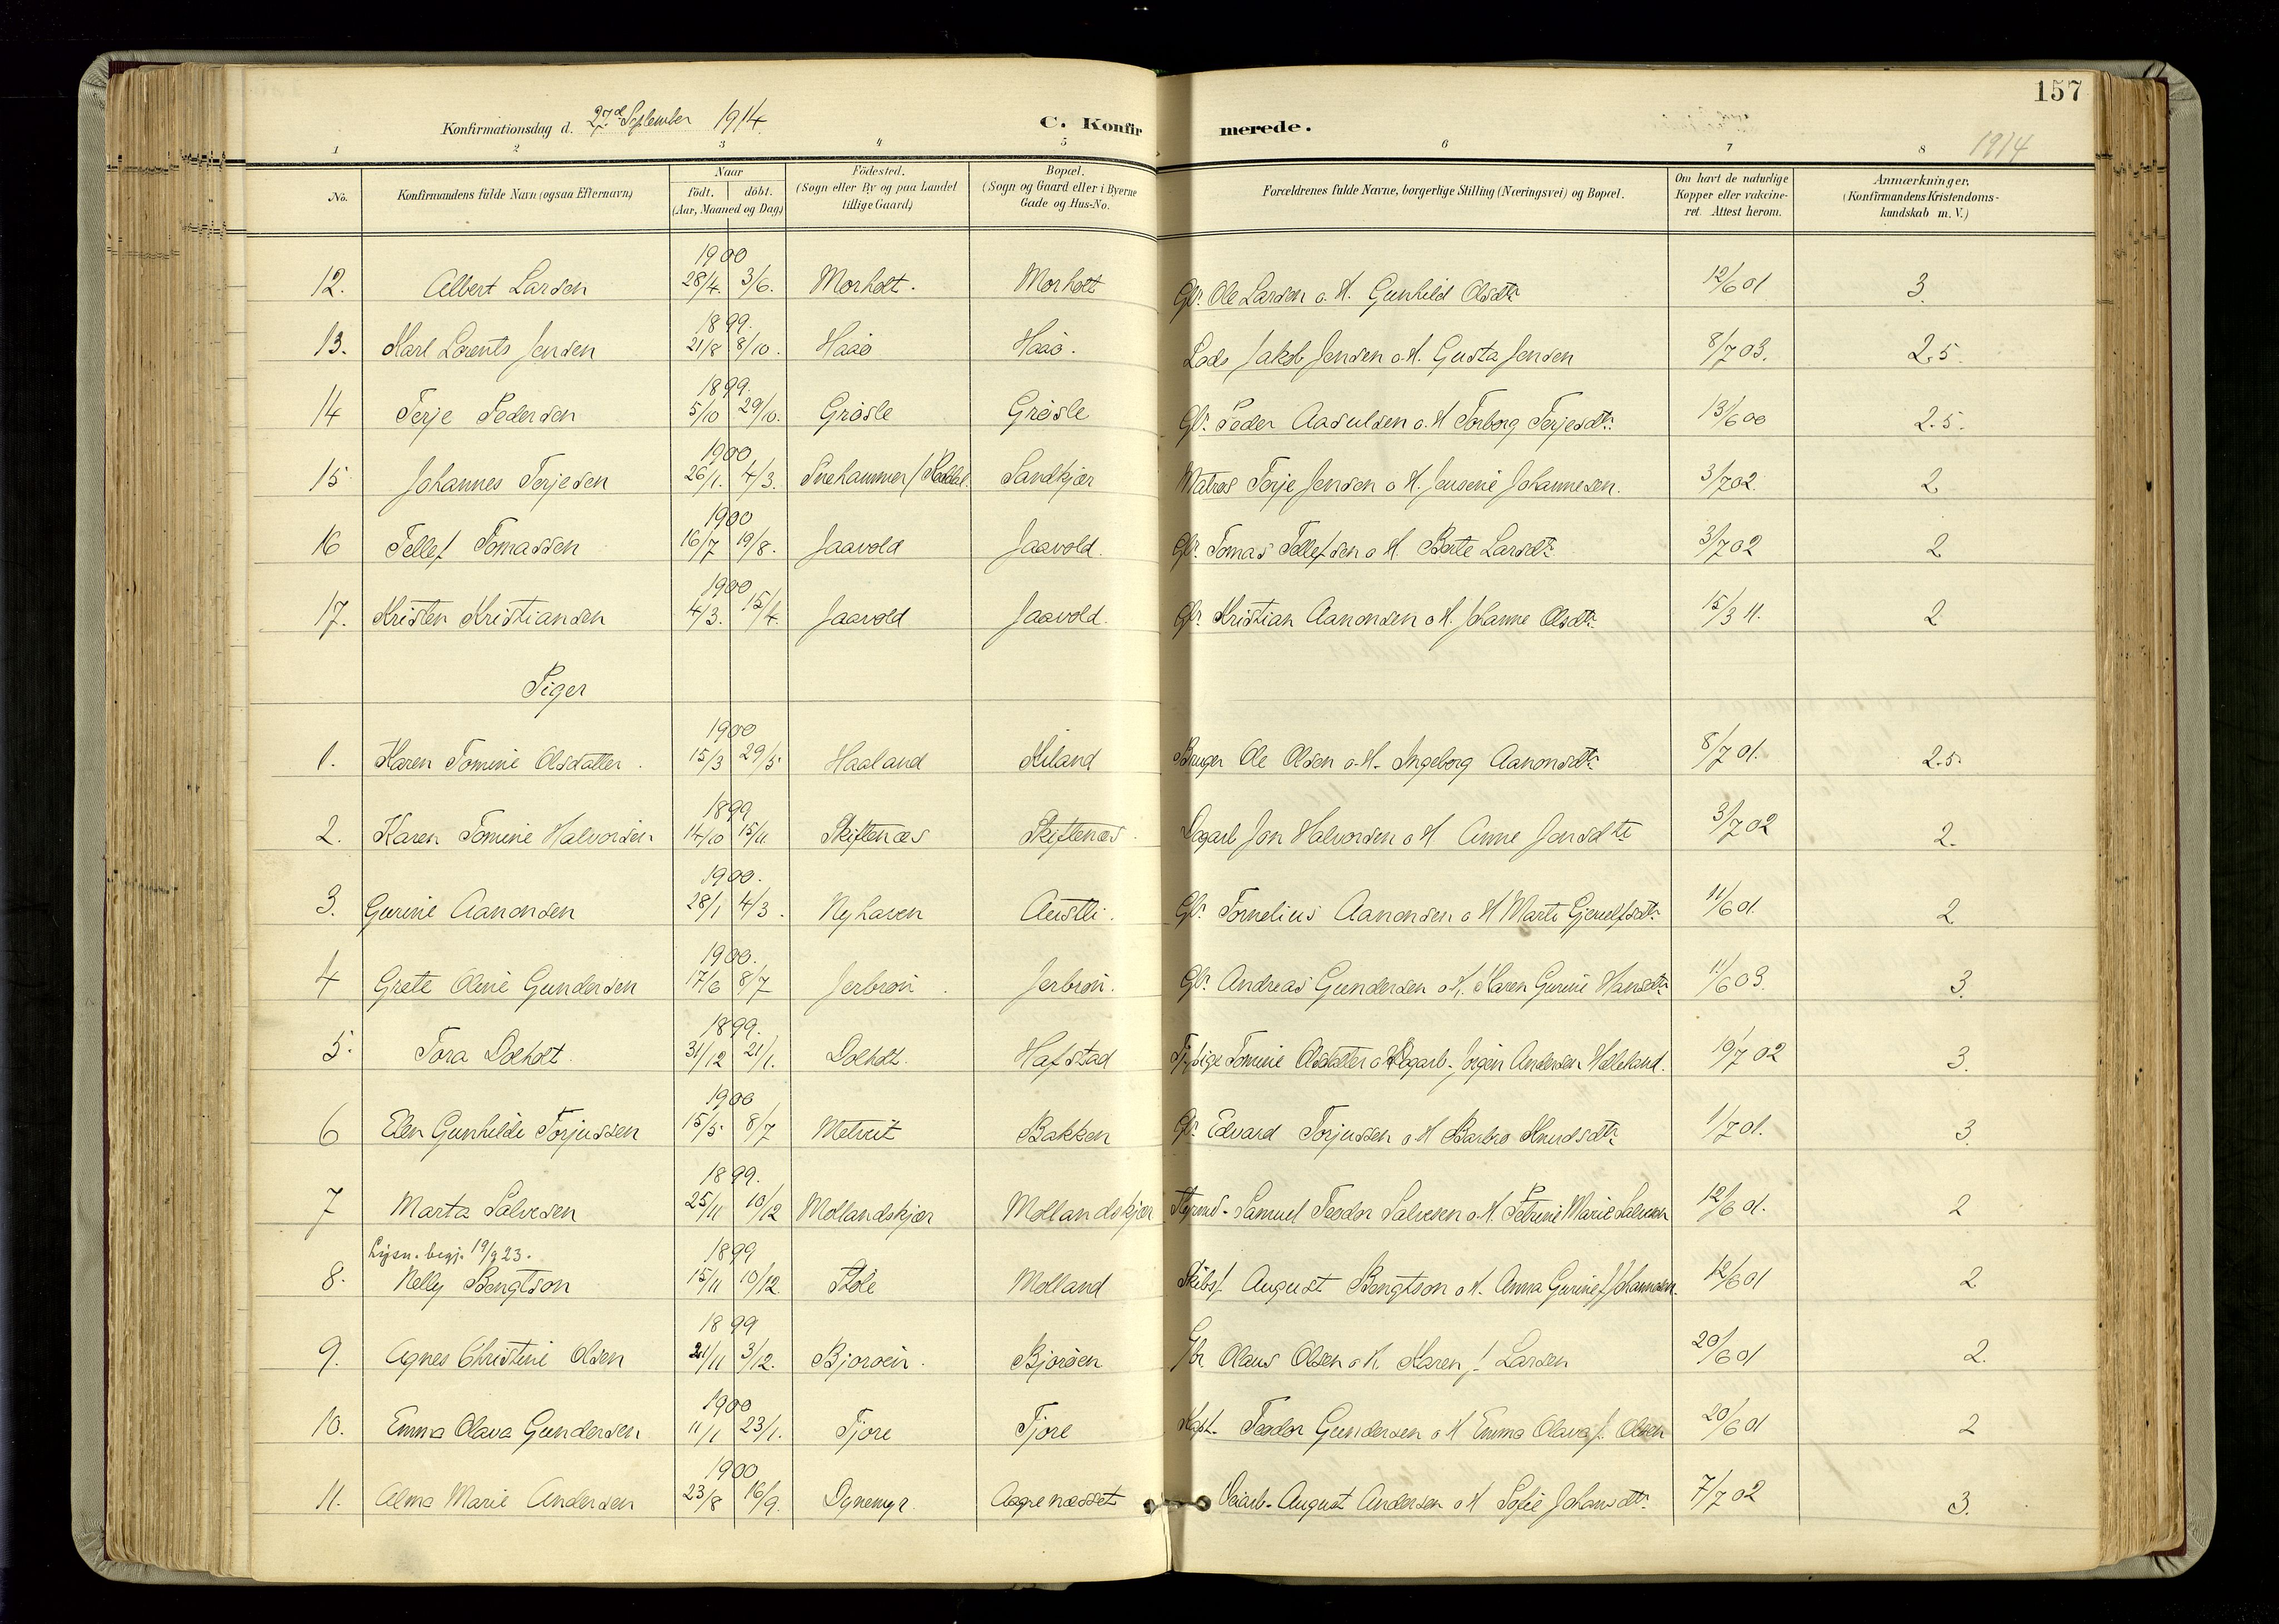 157
Konfirmationsdag d. 27d September 1914. C. Konfirmerede.
1914
1 2 3 4 5 6 7 8
No. Konfirmandens fulde Navn (ogsaa Efternavn) Naar födt. döbt. (Aar, Maaned og Dag) Födested. (Sogn eller By og paa Landet tillige Gaard) Bopæl. (Sogn og Gaard eller i Byerne Gade og Hus-No. Forældrenes fulde Navne, borgerlige Stilling (Næringsvei) og Bopæl. Om havt de naturlige Kopper eller vakcineret. Attest herom. Anmærkninger. (Konfirmandens Kristendomskundskab m. V.)
12. Albert Larsen 1900 28/4. 3/6. Morholt. Morholt Gbr. Ole Larsen o. H. Gunhild Olsdtr. 12/6 01 3.
13. Karl Lorents Jensen 1899. 21/8 8/10. Haaø Haaø. Lods Jakob Jensen o. H. Gusta Jensen 8/7 03. 2.5.
14 Terje Pedersen 1899. 5/10 29/10. Grøsle Grøsle Gbr. Peder Aasulsen o. H Torborg Terjesdtr. 13/6 00 2.5.
15 Johannes Terjesen 1900 26/1. 4/3. Sandkjær Matros Terje Jensen o H. Johannesen. 3/7 02. 2.
16 Tellef Tomassen 1900 16/7 19/8. Jaavold Jaavold. Gbr. Tomas Tellefsen o H. Berte Larsdtr. 3/7 02 2
17. Kristen Kristiansen 1900 4/3. 15/4. Jaavold Jaavold. Gbr. Kristian Aanonsen o H. Johanne Olsdtr. 15/3 11. 2
Piger
1. Karen Tomine Olsdatter. 1900 15/3 29/5. Haaland Kiland Bruger Ole Olsen o. H. Ingeborg Aanonsdtr. 8/7 01. 2.5.
2. Karen Tomine Halvorsen 1899 14/10 15/11. Skiftenæs Skiftenæs. Dagarb Jon Halvorsen o H Anne Jensdtr 3/7 02 2.
3. Gurine Aanonsen 1900. 28/1 4/3. Nyhaven Austli. Gbr. Tornelius Aanonsen o H Marte Gjerulfsdtr. 11/6 01. 2.
4 Grete Oline Gundersen 1900. 17/6 8/7 Jerbrøn. Jerbrøn. Gbr. Andreas Gundersen o H. Karen Gurine Hansdtr. 11/6 03. 3.
5. Tora Dolholt. 1899. 31/12 21/1. Dolholt. Hafstad Tomine Olsdatter o Dagarb. Jørgen Andersen 19/7 02 3.
6 Elen Gunhilde Torjussen 1900 15/5. 8/7 Metveit Bakken Gbr. Edvard Torjussen o H Barbro Knudsdtr. 1/7 01. 3.
7 Marta Salvesen 1899. 25/11 10/12 Mollandskjær Mollandskjær Styrmd. Samuel Teodor Salvesen o. H. Petrine Marie Salvesen 12/6 01. 2
Lysn. begj. 19/9 23.
8. Nelly Bengtson 1899 15/11 10/12. Støle Molland Skibsf. August Bengtson o H. Anna Gurine f. Johannesen. 12/6 01 2.
9. Agnes Christine Olsen 1899 21/11 3/12. Bjorøen. Bjorøen Gbr. Olaus Olsen o H. Karen f. Larsen 20/6 01 2.
10. Emma Olava Gundersen 1900 11/1 23/1. Fjøre Fjøre Kapt. Teodor Gundersen o H Emma Olava f. Olsen 20/6 01 2
11. Alma Marie Andersen 1900 23/8 16/9. Dynemyr. Aagrenæsset Veiarb. August Andersen o H Sofie Johansdtr. 7/7 02 3.